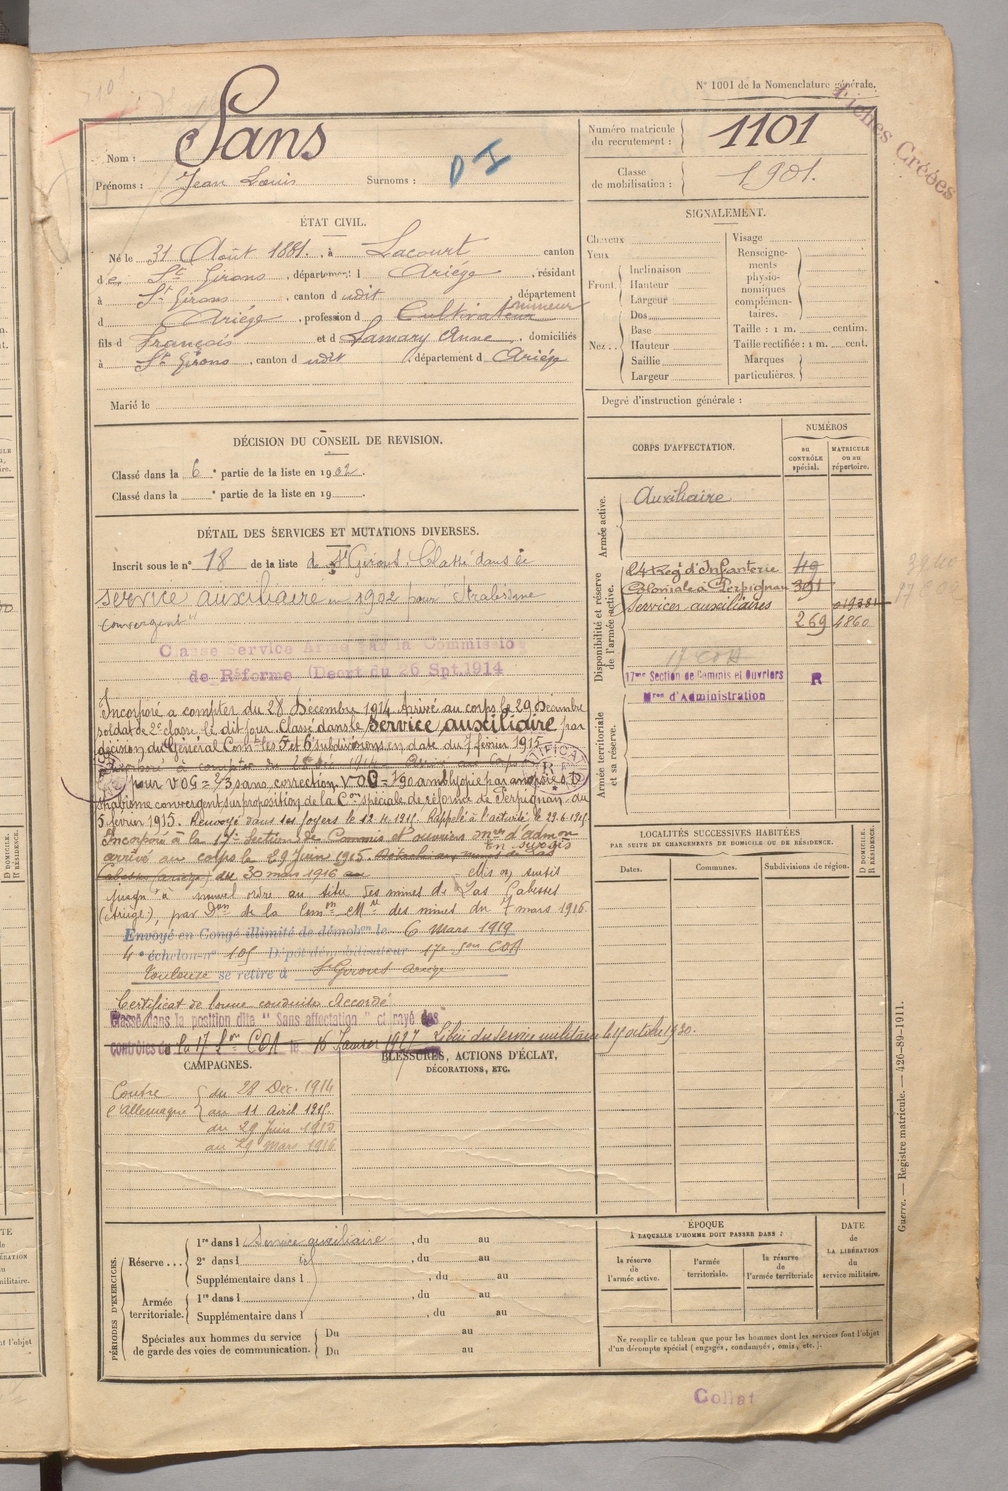 N° 1001 de la Nomenclature générale.
Fiches Créées
Nom : Sans
Prénoms : Jean Louis Surnoms :
D I
Numéro matricule du recrutement : 1101
Classe de mobilisation : 1901.
ÉTAT CIVIL.
Né le 31 Août 1881, à Lacourt canton
de St Girons, département d Ariège, résidant
à St Girons, canton d udit département
d Ariège, profession d Cultivateur mineur
fils d François et d Lamary Anne, domiciliés
à St Girons, canton d udit, département d Ariège
Marié le
SIGNALEMENT.
Cheveux
Yeux
Front. Inclinaison
Hauteur
Largeur
Nez.. Dos
Base
Hauteur
Saillie
Largeur
Visage
Renseignements physionomiques complémentaires.
Taille : 1 m. centim.
Taille rectifiée : 1 m. cent.
Marques particulières.
Degré d'instruction générale :
DÉCISION DU CONSEIL DE REVISION.
Classé dans la 6e partie de la liste en 1902.
Classé dans la e partie de la liste en 19
DÉTAIL DES SERVICES ET MUTATIONS DIVERSES.
Inscrit sous le n° 18 de la liste de St Girons. Classé dans le
service auxiliaire en 1902 pour Strabisme
convergent"
Classé Service Armé par la Commission
de Réforme (Décret du 26 Spt. 1914
Incorporé à compter du 28 Décembre 1914. Arrivé au corps le 29 Décembre
soldat de 2e classe le dit jour. Classé dans le Service auxiliaire par
décision du Général Comt les 5 et 6 subdivisions en date du 7 février 1915
pour VOG = 2/3 sans correction VOD = 1/90 amblyopie par anopsie O.D.
strabisme convergent sur proposition de la Con spéciale de réforme de Perpignan du
5 février 1915. Renvoyé dans ses foyers le 12.4.1915. Rappelé à l'activité le 29.6.1915.
Incorporé à la 17e Section de Commis et ouvriers mres d'admon
arrivé au corps le 29 Juin 1915. Détaché aux mines de Las
Cabesses (Ariège) du 30 mars 1916 En sursis
Mis en sursis
jusqu'à nouvel ordre au titre des mines de Las Cabesses
(Ariège), par Don de la Comon Mle des mines du 7 mars 1916.
Envoyé en Congé illimité de démobon le 6 Mars 1919
4e échelon n° 105 Dépôt démobilisateur 17e Son COA
Toulouse se retire à St Girons Ariège
Certificat de bonne conduite Accordé
Classé dans la position dite "Sans affectation" et rayé des
contrôles de la 17 Son COA le 16 Janvier 1927 Libéré du service militaire le 15 octobre 1930.
CORPS D'AFFECTATION.
NUMÉROS
au contrôle spécial.
matricule ou au répertoire.
Armée active.
Auxiliaire
Disponibilité et réserve de l'armée active.
24 Rég d'Infanterie 49
Coloniale à Perpignan 391
Services auxiliaires 01938
269 4860
17 COA
17me Section de Commis et Ouvriers R
Mres d'Administration
Armée territoriale et sa réserve.
LOCALITÉS SUCCESSIVES HABITÉES
PAR SUITE DE CHANGEMENTS DE DOMICILE OU DE RÉSIDENCE.
Dates. Communes. Subdivisions de région. D DOMICILE. R RÉSIDENCE.
CAMPAGNES.
Contre l'Allemagne
du 28 Déc. 1914
au 11 Avril 1915.
du 29 Juin 1915
au 29 Mars 1916
BLESSURES, ACTIONS D'ÉCLAT,
DÉCORATIONS, ETC.
PÉRIODES D'EXERCICES.
Réserve ... 1re dans l Service auxiliaire, du au
2e dans l id, du au
Supplémentaire dans l, du au
Armée territoriale. 1re dans l, du au
Supplémentaire dans l, du au
Spéciales aux hommes du service de garde des voies de communication. Du au
Du au
ÉPOQUE
À LAQUELLE L'HOMME DOIT PASSER DANS :
la réserve de l'armée active.
l'armée territoriale.
la réserve de l'armée territoriale
DATE de LA LIBÉRATION du service militaire.
Ne remplir ce tableau que pour les hommes dont les services font l'objet
d'un décompte spécial (engagés, condamnés, omis, etc.).
Guerre. — Registre matricule. — 426-89-1911.
Collat